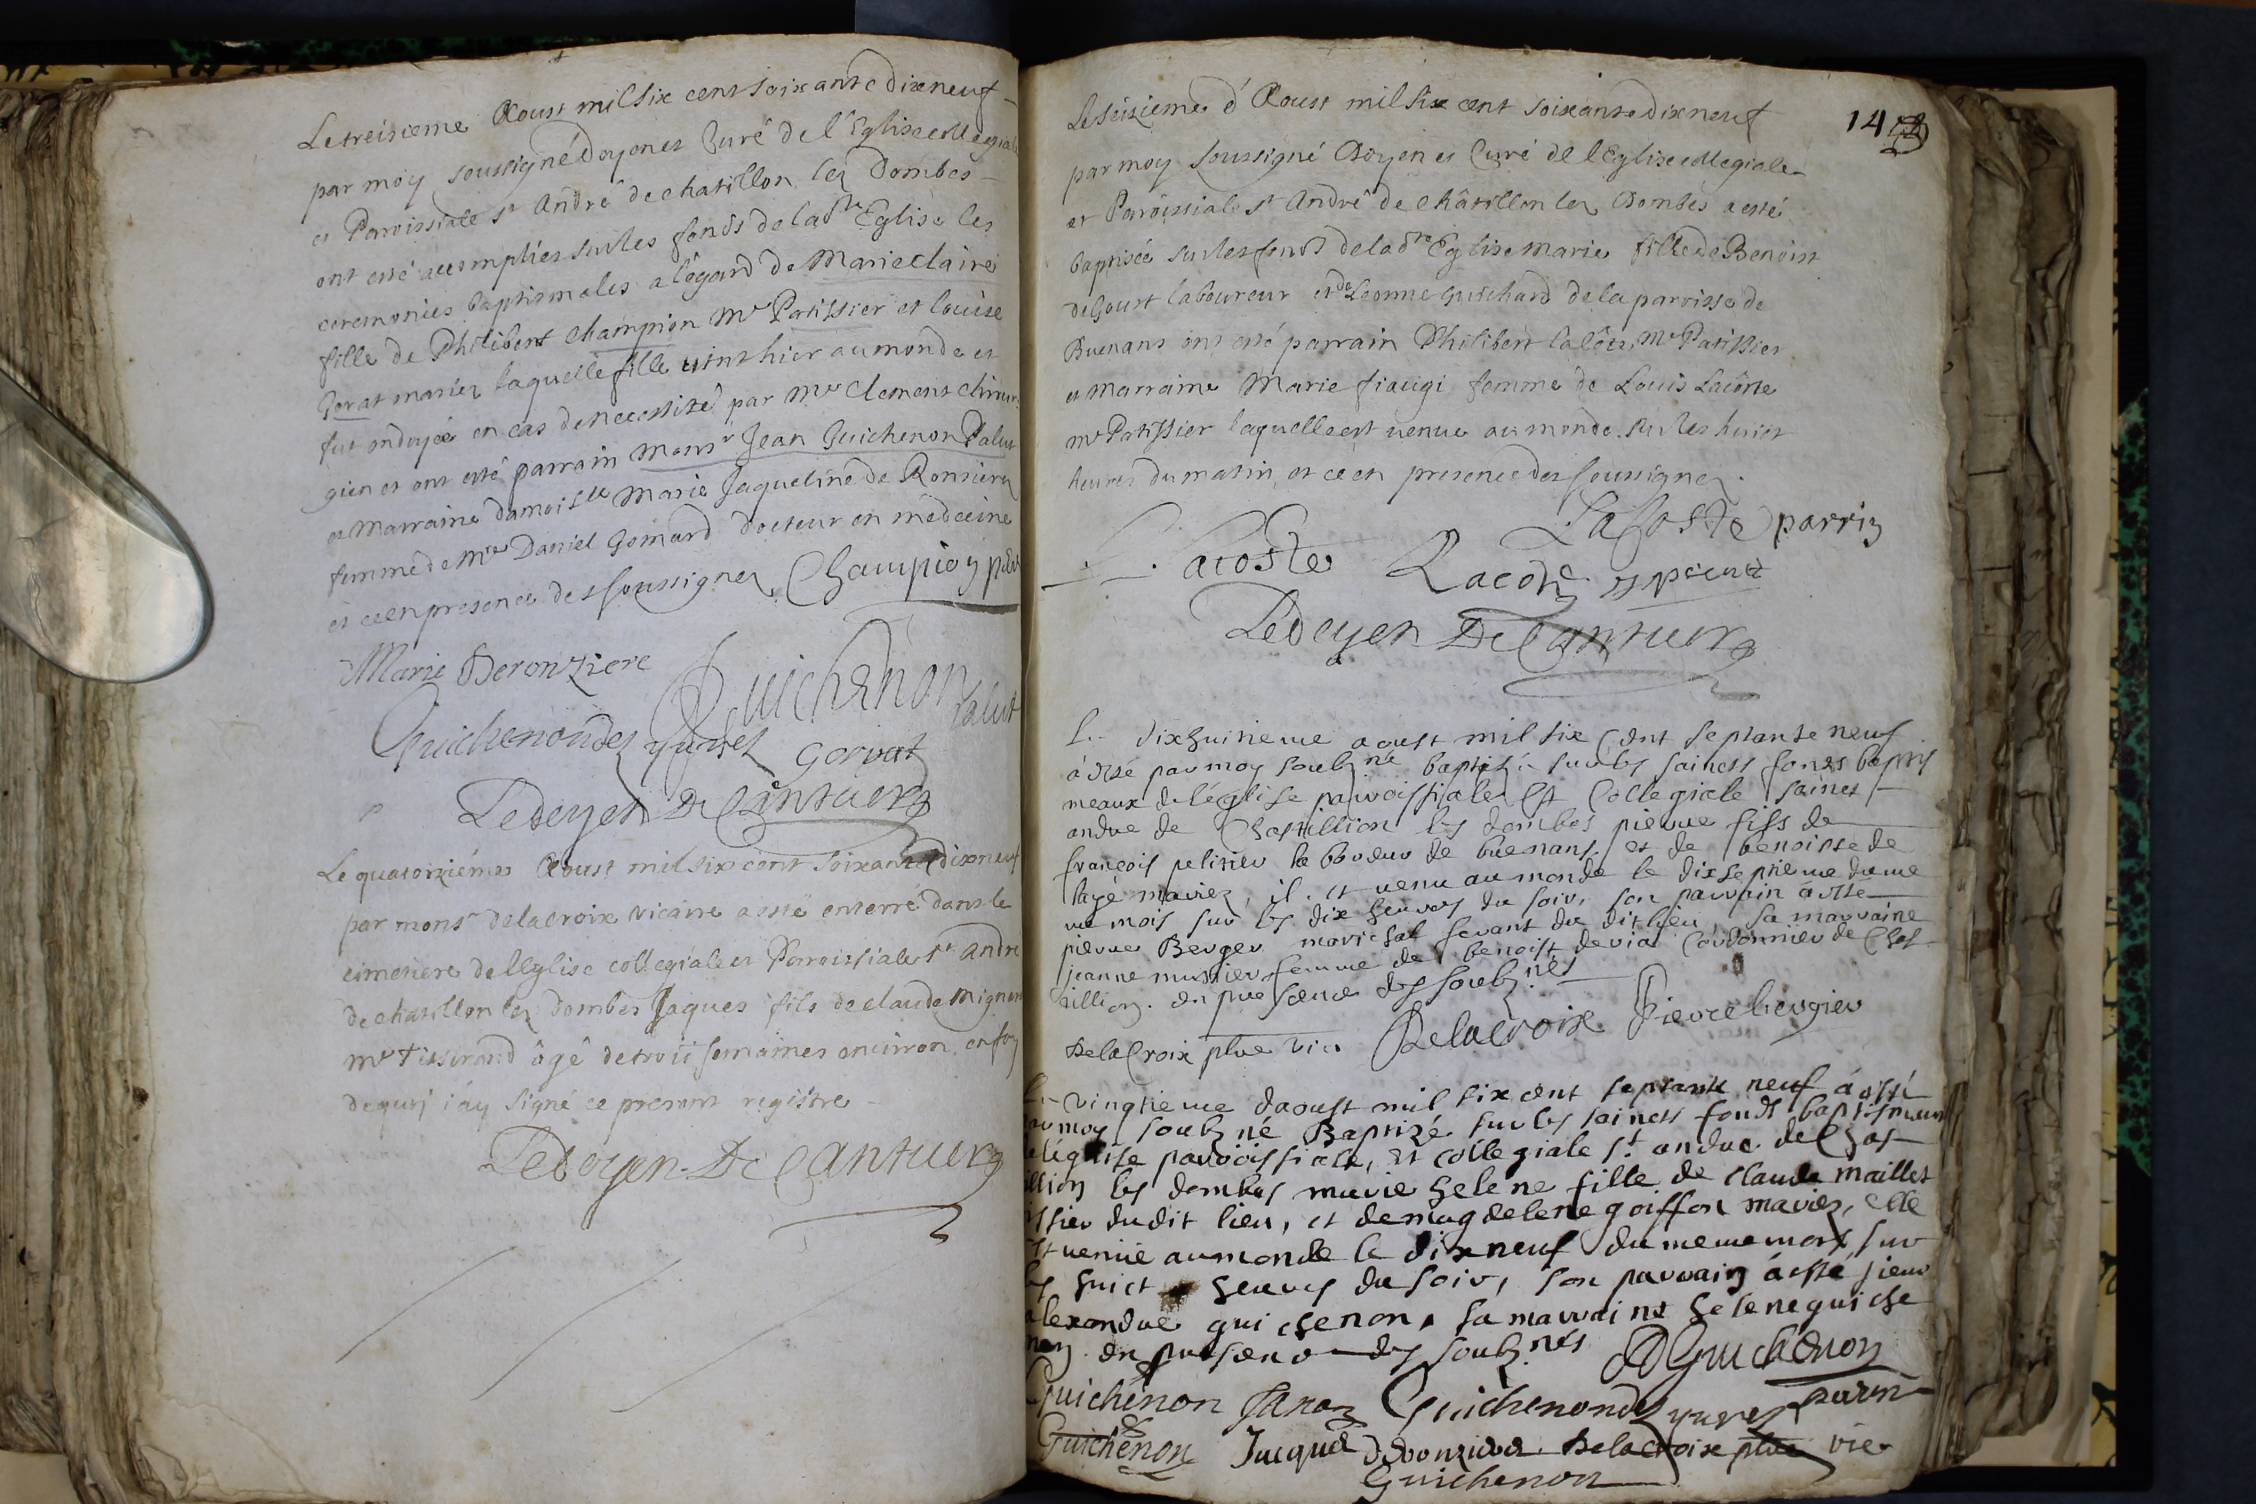 Le treisieme Aoust mil six cent soixante dixneuf
par moy soussigné Doyen et Curé de l'Eglise collegiale
et Paroissiale st André de chatillon lez Dombes
ont esté accomplies sur les fonds de la dte Eglise les
ceremonies baptismales a legard de Marie claire
fille de Philibert Champion Me Patissier et louise
Gorat mariez laquelle fille vint hier au monde et
fut ondoyée en cas de necessité par Me Clement chirur
gien et ont esté parrain Monsr Jean Guichenon Palut
et Marraine damoislle Marie Jaqueline de Ronsiere
femme de Mre Daniel Gomard docteur en médecine
et ce en presence des soussignez Champion
Marie Deronziere
Guichenon
palut
Guichenon Gorvat
Le doyen De Cantuer
Le quatorziéme Aoust mil six cent soixante dixneuf
par monsr delacroix vicaire a esté enterré dans le
cimetiere de l'Eglise collegiale et Paroissiale st André
de chatillon lez dombes Jaques fils de claude Mignon
Me Tisserand âgé de trois semaines environ en foy
dequoj i'ay signé ce present registre
Le doyen De Cantuer
14
Le seizieme d'Aoust mil six cent soixante dixneuf
par moy soussigné Doyen et Curé de l'Eglise collegiale
et Paroissiale st André de châtillon lez Dombes a esté
baptisée sur les fonds de la dte Eglise Marie fille de Benoist
degourt laboureur et de Leonne Guichard de la paroisse de
Buenans ont esté parrain Philibert lacôte Me Patissier
et Marraine Marie fiaugi femme de Louis Lacôste
me Patissier laquelle est venue au monde sur les huict
heures du matin et ce en presence des soussignez.
La Coste parrin
Lacoste Lacoste present
Le doyen De Cantuer
Le dixhuitieme aoust mil six Cent septante neuf
à esté par moy soubzné baptizé sur les saincts fonds baptis
meaux de l'église parroissialle et Collegiale sainct
andre de Chastillion les dombes pierre fils de
françois pelisier labboureur de buenans, et de benoiste de
laye mariez, il est venu au monde le dixseptieme du me
me mois sur les dix heures du soir, son parrain à esté
pierre Berger marichal ferant du dit lieu, sa marraine
jeanne mussier femme de benoist devia Cordonnier de Chas
tillion. en presence des soubznés
DelaCroix ptre vic. Delacroix Pierre bergier
Le vingtieme daoust mil six cent septante neuf á esté
par moy soubzné Baptizé sur les saincts fonds baptismaux
de légglise parroissialle, et collegiale st. andre de Chas
tillion les dombes marie helene fille de claude maillet
dudit lieu, et de magdelene goiffon mariez, elle
est venüe au monde le dixneuf du meme mois sur
les huict heures du soir, son parrain à esté sieur
alexandre guichenon, sa marraine helene guiche
non en presence des soubznés A Guichenon
Guichenon Guichenon parin
Guichenon Jacques deronziere Delacroix ptre vic
Guichenon